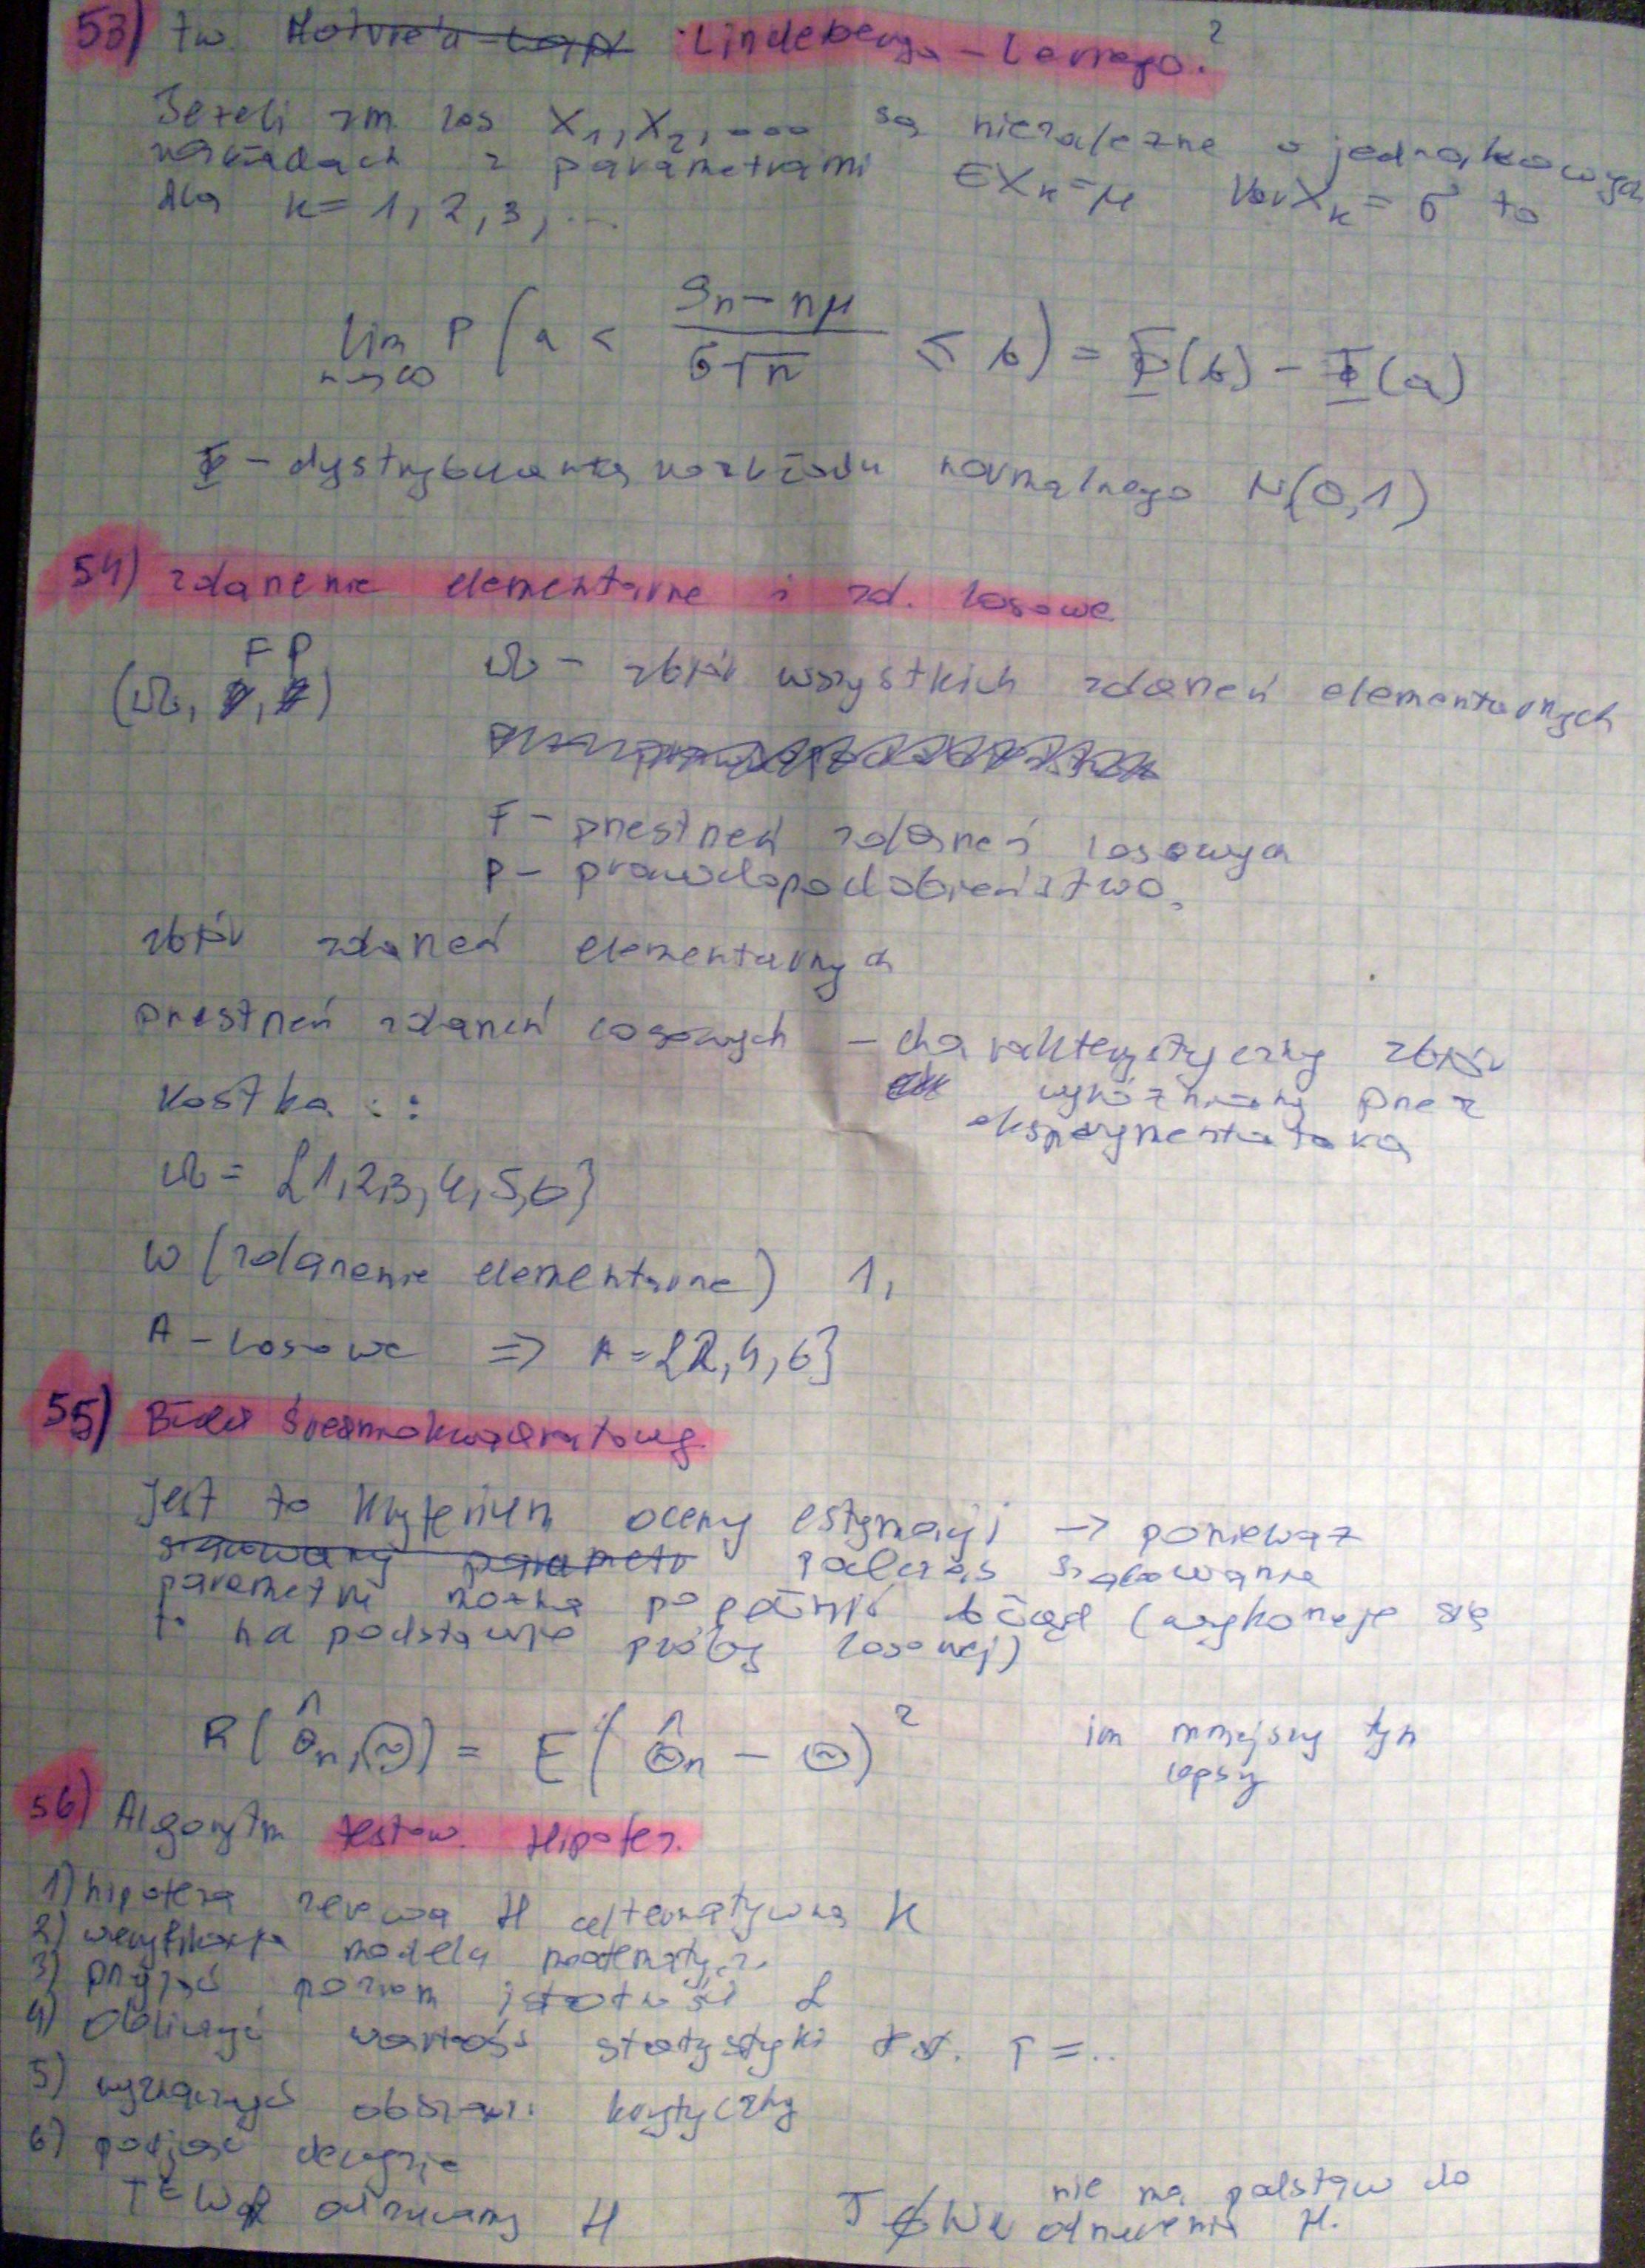 53) tw. Lindeberga - Levyego. ?
Jeżeli zm. los X₁, X₂, .... są niezależne o jednakowych
rozkładach z parametrami EXₖ = μ VarXₖ = σ to
dla k = 1, 2, 3, ...
lim n→∞ P ( a < (Sn - nμ) / (σ√n) ≤ b ) = Φ(b) - Φ(a)
Φ - dystrybuanta rozkładu normalnego N(0,1)
54) zdarzenie elementarne i zd. losowe
F P
(Ω, , ) Ω - zbiór wszystkich zdarzeń elementarnych
F - przestrzeń zdarzeń losowych
P - prawdopodobieństwo,
zbiór zdarzeń elementarnych
przestrzeń zdarzeń losowych - charakterystyczny zbiór
wyróżniony przez
eksperymentatora
kostka ::
Ω = {1,2,3,4,5,6}
ω (zdarzenie elementarne) 1,
A - losowe => A = {2,4,6}
55) Błąd średniokwadratowy.
Jest to kryterium oceny estymacji -> ponieważ
szacowany parametr podczas szacowania
parametru można popełnić błąd (wykonuje się
to na podstawie próby losowej)
R(Θ̂n, Θ) = E(Θ̂n - Θ)² im mniejszy tym
lepszy
56) Algorytm testow. Hipotez.
1) hipoteza zerowa H alternatywna K
2) weryfikacja modelu matematycz.
3) przyjąć poziom istotności α
4) Obliczyć wartość statystyki test. T = ..
5) wyznaczyć obszar krytyczny
6) podjąć decyzję
T ∈ Wα odrzucamy H
T ∉ Wα nie ma podstaw do
odrzucenia H.